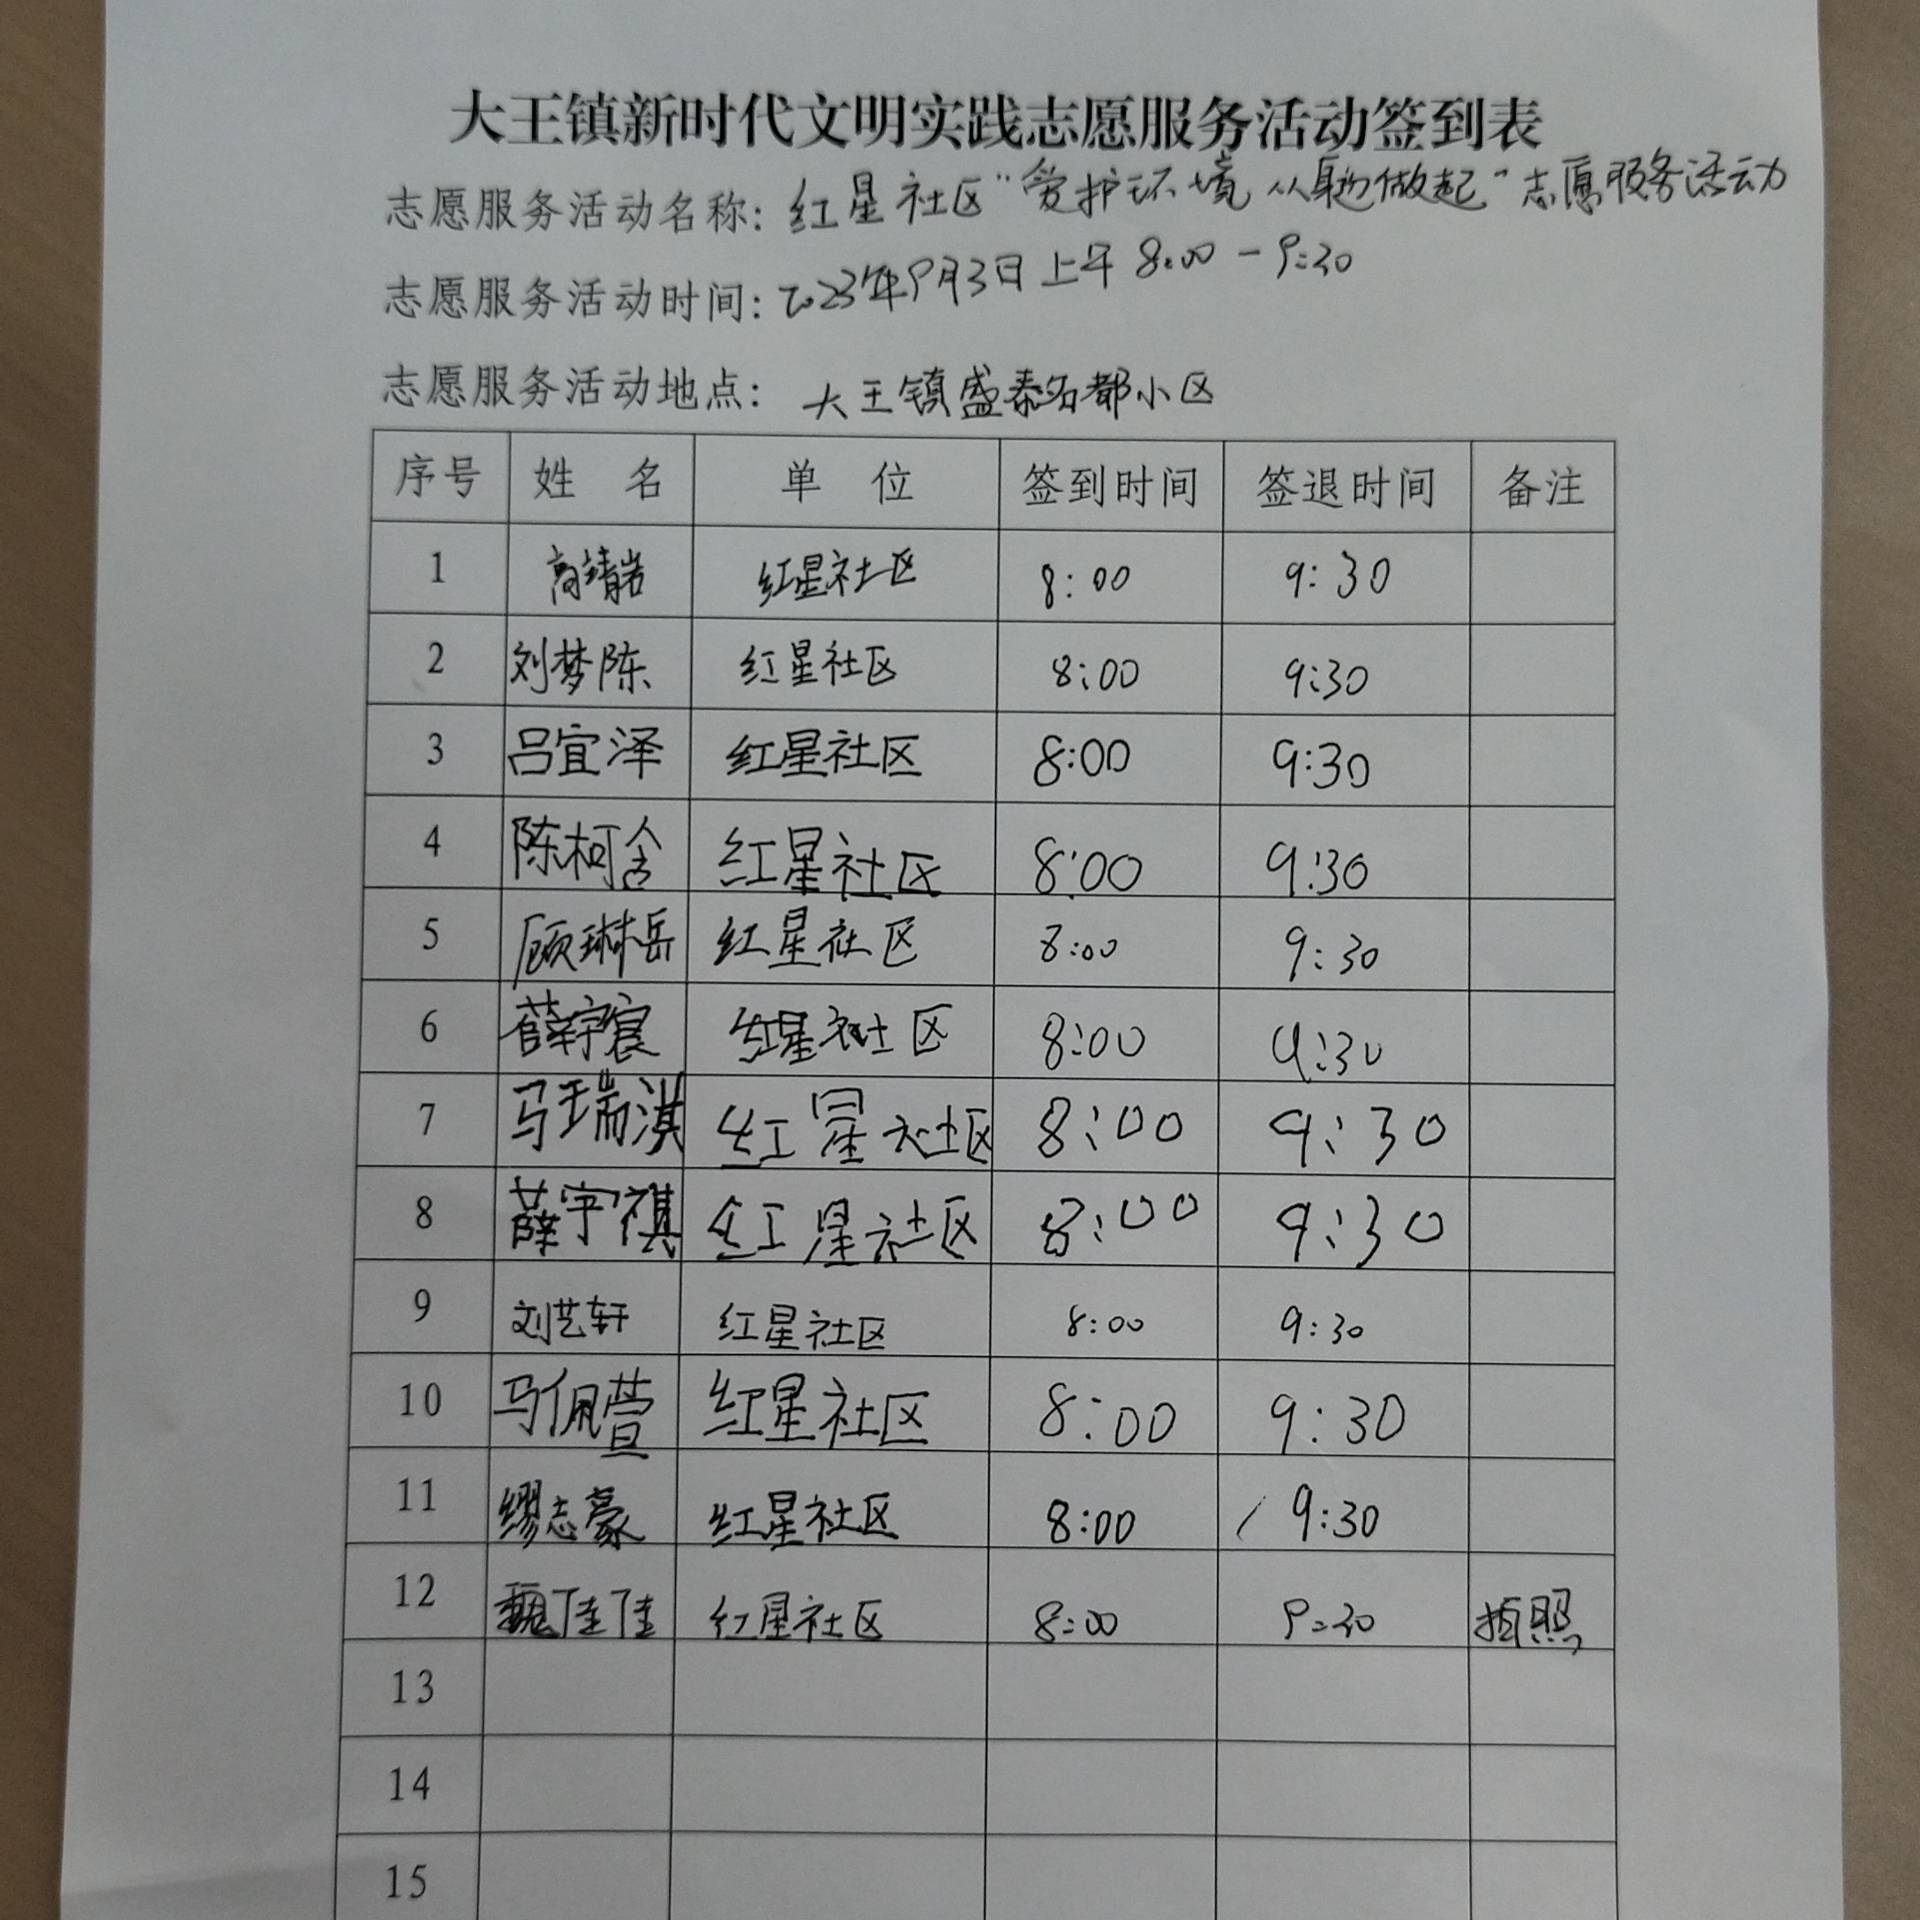 大王镇新时代文明实践志愿服务活动签到表
志愿服务活动名称: 红星社区“爱护环境 从身边做起”志愿服务活动
志愿服务活动时间: 2023年9月3日上午 8:00-9:30
志愿服务活动地点: 大王镇盛泰名都小区
序号 姓 名 单 位 签到时间 签退时间 备注
1 高靖岩 红星社区 8:00 9:30
2 刘梦陈 红星社区 8:00 9:30
3 吕宜泽 红星社区 8:00 9:30
4 陈柯含 红星社区 8:00 9:30
5 顾琳岳 红星社区 8:00 9:30
6 薛宇宸 红星社区 8:00 9:30
7 马瑞淇 红星社区 8:00 9:30
8 薛宇祺 红星社区 8:00 9:30
9 刘艺轩 红星社区 8:00 9:30
10 马佩萱 红星社区 8:00 9:30
11 缪志豪 红星社区 8:00 9:30
12 魏佳佳 红星社区 8:00 9:30 拍照
13
14
15